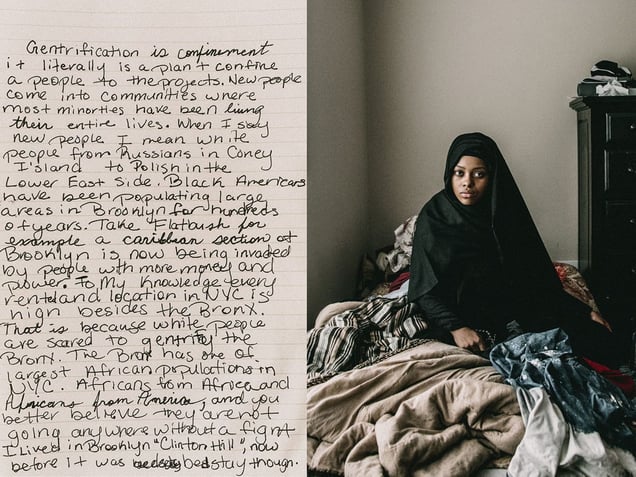 Gentrification is confinement
it literally is a plan t confine
a people to the projects. New people
come into communities where
most minorties have been living
their entire lives. When I say
new people I mean white
people from Russians in Coney
Island to Polish in the
Lower East Side. Black Americans
have been populating large
areas in Brooklyn for hundreds
of years. Take Flatbush for
example a caribbian section of
Brooklyn is now being invaded
by people with more money and
power. To My Knowledge every
rent and location in NYC is
high besides the Bronx.
That is because white people
are scared to gentrify the
Bronx. The Bronx has one of
largest African populations in
NYC. Africans from Africa and
Africans from America, and you
better believe they are not
going anywhere without a fight
I lived in Brooklyn "Clinton Hill", now
before it was bedstay though.